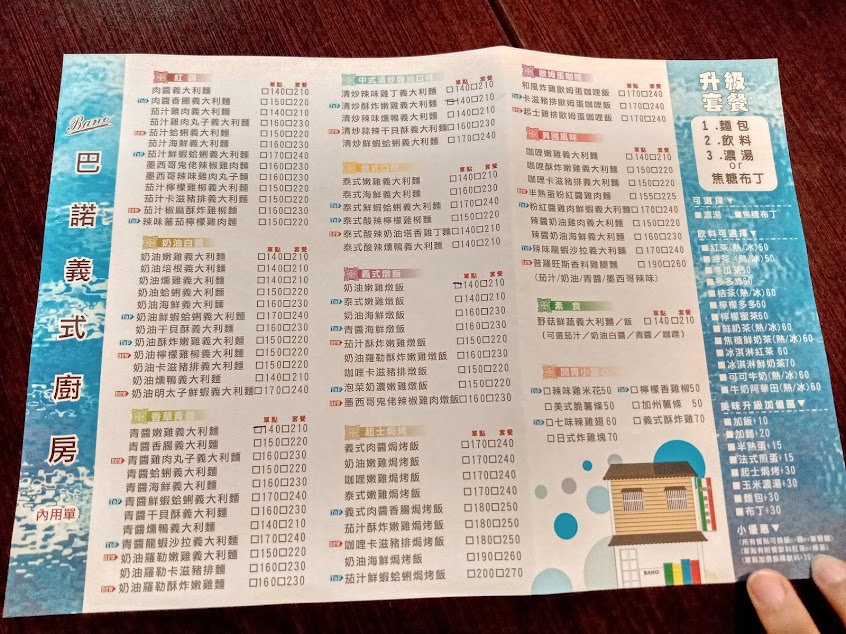 Bano
巴諾義式廚房
內用單
紅醬 單點 套餐
肉醬義大利麵 □140□210
TOP 肉醬香腸義大利麵 □150□220
茄汁雞肉義大利麵 □140□210
茄汁雞肉丸子義大利麵 □160□230
NEW 茄汁蛤蜊義大利麵 □150□220
茄汁海鮮義大利麵 □160□230
TOP 茄汁鮮蝦蛤蜊義大利麵 □170□240
墨西哥鬼佬辣椒雞肉麵 □160□230
墨西哥辣味雞肉丸子麵 □160□230
茄汁檸檬雞柳義大利麵 □150□220
茄汁卡滋豬排義大利麵 □150□220
NEW 茄汁椒麻酥炸雞柳麵 □160□230
TOP 辣味蕃茄檸檬雞肉麵 □150□220
奶油白醬 單點 套餐
奶油嫩雞義大利麵 □140□210
奶油培根義大利麵 □140□210
奶油燻雞義大利麵 □140□210
奶油蛤蜊義大利麵 □150□220
奶油海鮮義大利麵 □160□230
TOP 奶油鮮蝦蛤蜊義大利麵 □170□240
奶油干貝酥義大利麵 □160□230
TOP 奶油酥炸嫩雞義大利麵 □150□220
NEW 奶油檸檬雞柳義大利麵 □150□220
奶油卡滋豬排義大利麵 □150□220
奶油燻鴨義大利麵 □140□210
NEW 奶油明太子鮮蝦義大利麵 □170□240
單點 套餐
青醬嫩雞義大利麵 □140□210
青醬香腸義大利麵 □150□220
NEW 青醬雞肉丸子義大利麵 □160□230
青醬蛤蜊義大利麵 □150□220
青醬海鮮義大利麵 □160□230
TOP 青醬鮮蝦蛤蜊義大利麵 □170□240
青醬干貝酥義大利麵 □160□230
青醬燻鴨義大利麵 □140□210
TOP 青醬龍蝦沙拉義大利麵 □170□240
NEW 奶油羅勒嫩雞義大利麵 □150□220
奶油羅勒卡滋豬排麵 □160□230
奶油羅勒酥炸嫩雞麵 □160□230
中式清炒醬油口味 單點 套餐
清炒辣味雞丁義大利麵 □140□210
TOP 清炒酥炸嫩雞義大利麵 □150□220
清炒辣味燻鴨義大利麵 □140□210
NEW 清炒蒜辣干貝酥義大利麵 □160□230
清炒鮮蝦蛤蜊義大利麵 □170□240
泰式口味 單點 套餐
泰式嫩雞義大利麵 □140□210
泰式海鮮義大利麵 □160□230
TOP 泰式鮮蝦蛤蜊義大利麵 □170□240
TOP 泰式酸辣檸檬雞柳麵 □150□220
泰式酸辣奶油塔香雞丁麵 □150□220
泰式酸辣燻鴨義大利麵 □140□210
義式燉飯 單點 套餐
奶油嫩雞燉飯 □140□210
TOP 泰式嫩雞燉飯 □140□210
奶油海鮮燉飯 □160□230
TOP 青醬海鮮燉飯 □160□230
NEW 茄汁酥炸嫩雞燉飯 □150□220
奶油羅勒酥炸嫩雞燉飯 □160□230
咖哩卡滋豬排燉飯 □150□220
TOP 泡菜奶濃嫩雞燉飯 □150□220
NEW 墨西哥鬼佬辣椒雞肉燉飯 □160□230
起士焗烤 單點 套餐
義式肉醬焗烤飯 □170□240
奶油嫩雞焗烤飯 □170□240
咖哩嫩雞焗烤飯 □170□240
泰式嫩雞焗烤飯 □170□240
TOP 義式肉醬香腸焗烤飯 □180□250
茄汁酥炸嫩雞焗烤飯 □180□250
NEW 咖哩卡滋豬排焗烤飯 □180□250
奶油海鮮焗烤飯 □190□260
TOP 茄汁鮮蝦蛤蜊焗烤飯 □200□270
歐姆蛋咖哩 單點 套餐
和風炸雞歐姆蛋咖哩飯 □170□240
TOP 卡滋豬排歐姆蛋咖哩飯 □170□240
NEW 起士雞排歐姆蛋咖哩飯 □170□240
異國風味 單點 套餐
咖哩嫩雞義大利麵 □140□210
咖哩酥炸嫩雞義大利麵 □150□220
咖哩卡滋豬排義大利麵 □150□220
NEW 半熟蛋粉紅醬雞肉麵 □155□225
TOP 粉紅醬雞肉鮮蝦義大利麵 □170□240
辣醬奶油雞肉義大利麵 □150□220
辣醬奶油海鮮義大利麵 □160□230
TOP 辣味龍蝦沙拉義大利麵 □170□240
NEW 普羅旺斯香料雞腿麵 □190□260
(茄汁/奶油/青醬/墨西哥辣味)
素食 單點 套餐
野菇鮮蔬義大利麵／飯 □140□210
(可選茄汁／奶油白醬／青醬／咖哩)
TOP □辣味雞米花50
TOP □檸檬香雞柳50
□美式脆薯條 50
□加州薯條 50
TOP □七味辣雞翅 60
□義式酥炸雞 70
□日式炸雞塊 70
BANO
升級套餐
1.麵包
2.飲料
3.濃湯
or
焦糖布丁
可選擇▼
■濃湯 ■焦糖布丁
飲料可選擇▼
■紅茶(熱/冰)60
■綠茶(熱/冰)50
■冬瓜茶50
■多多綠60
■桔茶(熱/冰)60
■檸檬多多60
■檸檬蜜茶60
■鮮奶茶(熱/冰)60
■焦糖鮮奶茶(熱/冰)60
■冰淇淋紅茶 60
■冰淇淋奶茶70
■可可牛奶(熱/冰)60
■牛奶阿華田(熱/冰)60
美味升級加價區▼
■加飯+10
■加麵+20
■半熟蛋+15
■法式煎蛋+15
■起士焗烤+30
■玉米濃湯+30
■麵包+30
■布丁+30
小優惠▼